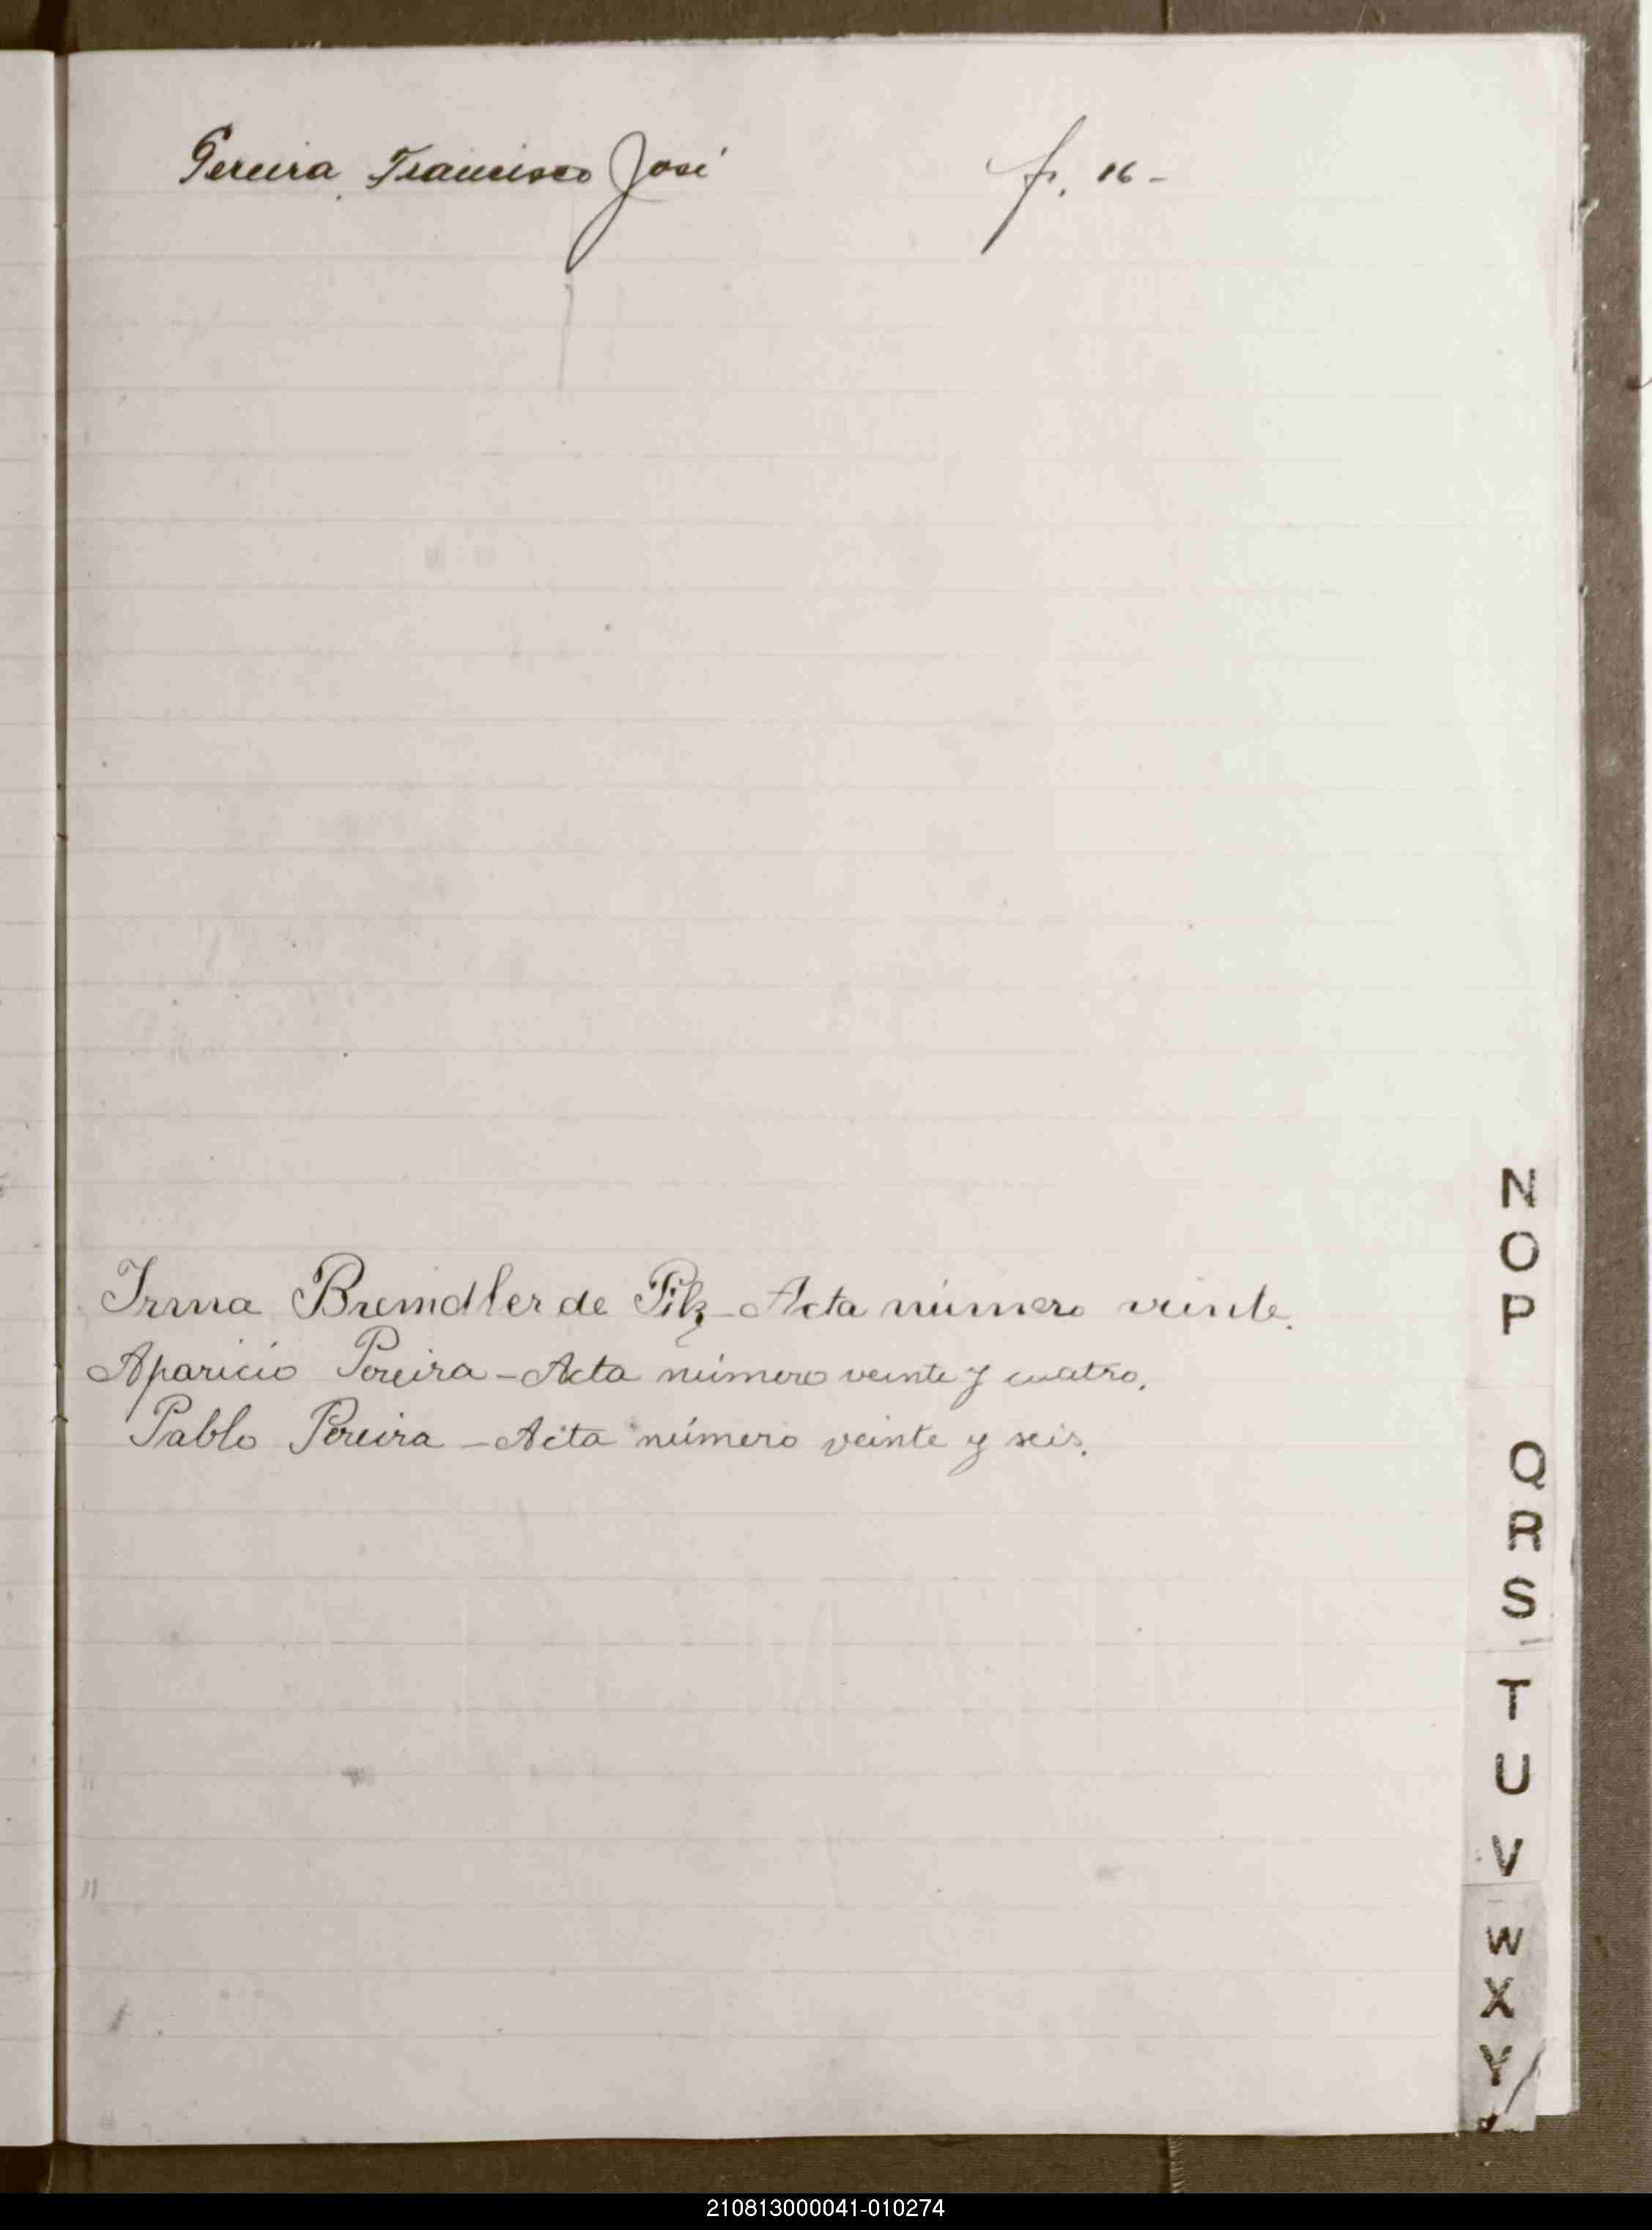 Pereira Francisco José f. 16-
Irma Bremdler de Pilz - Acta número veinte.
Aparicio Pereira - Acta número veinte y cuatro.
Pablo Pereira - Acta número veinte y seis.
N
O
P
Q
R
S
T
U
V
W
X
Y
210813000041-010274